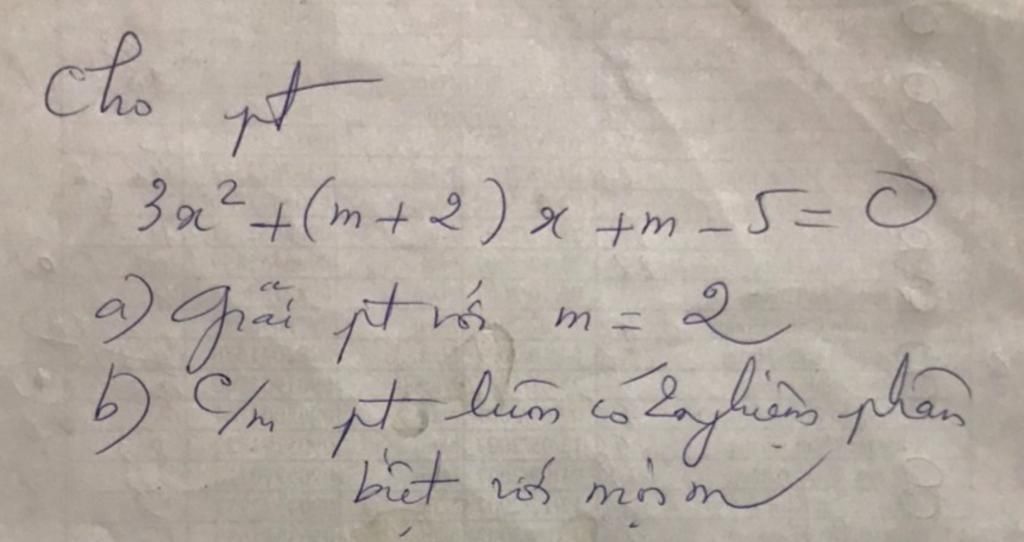 Cho pt
3x² + (m + 2) x + m - 5 = 0
a) Giải pt với m = 2
b) C/m pt luôn có 2 nghiệm phân
biệt với mọi m